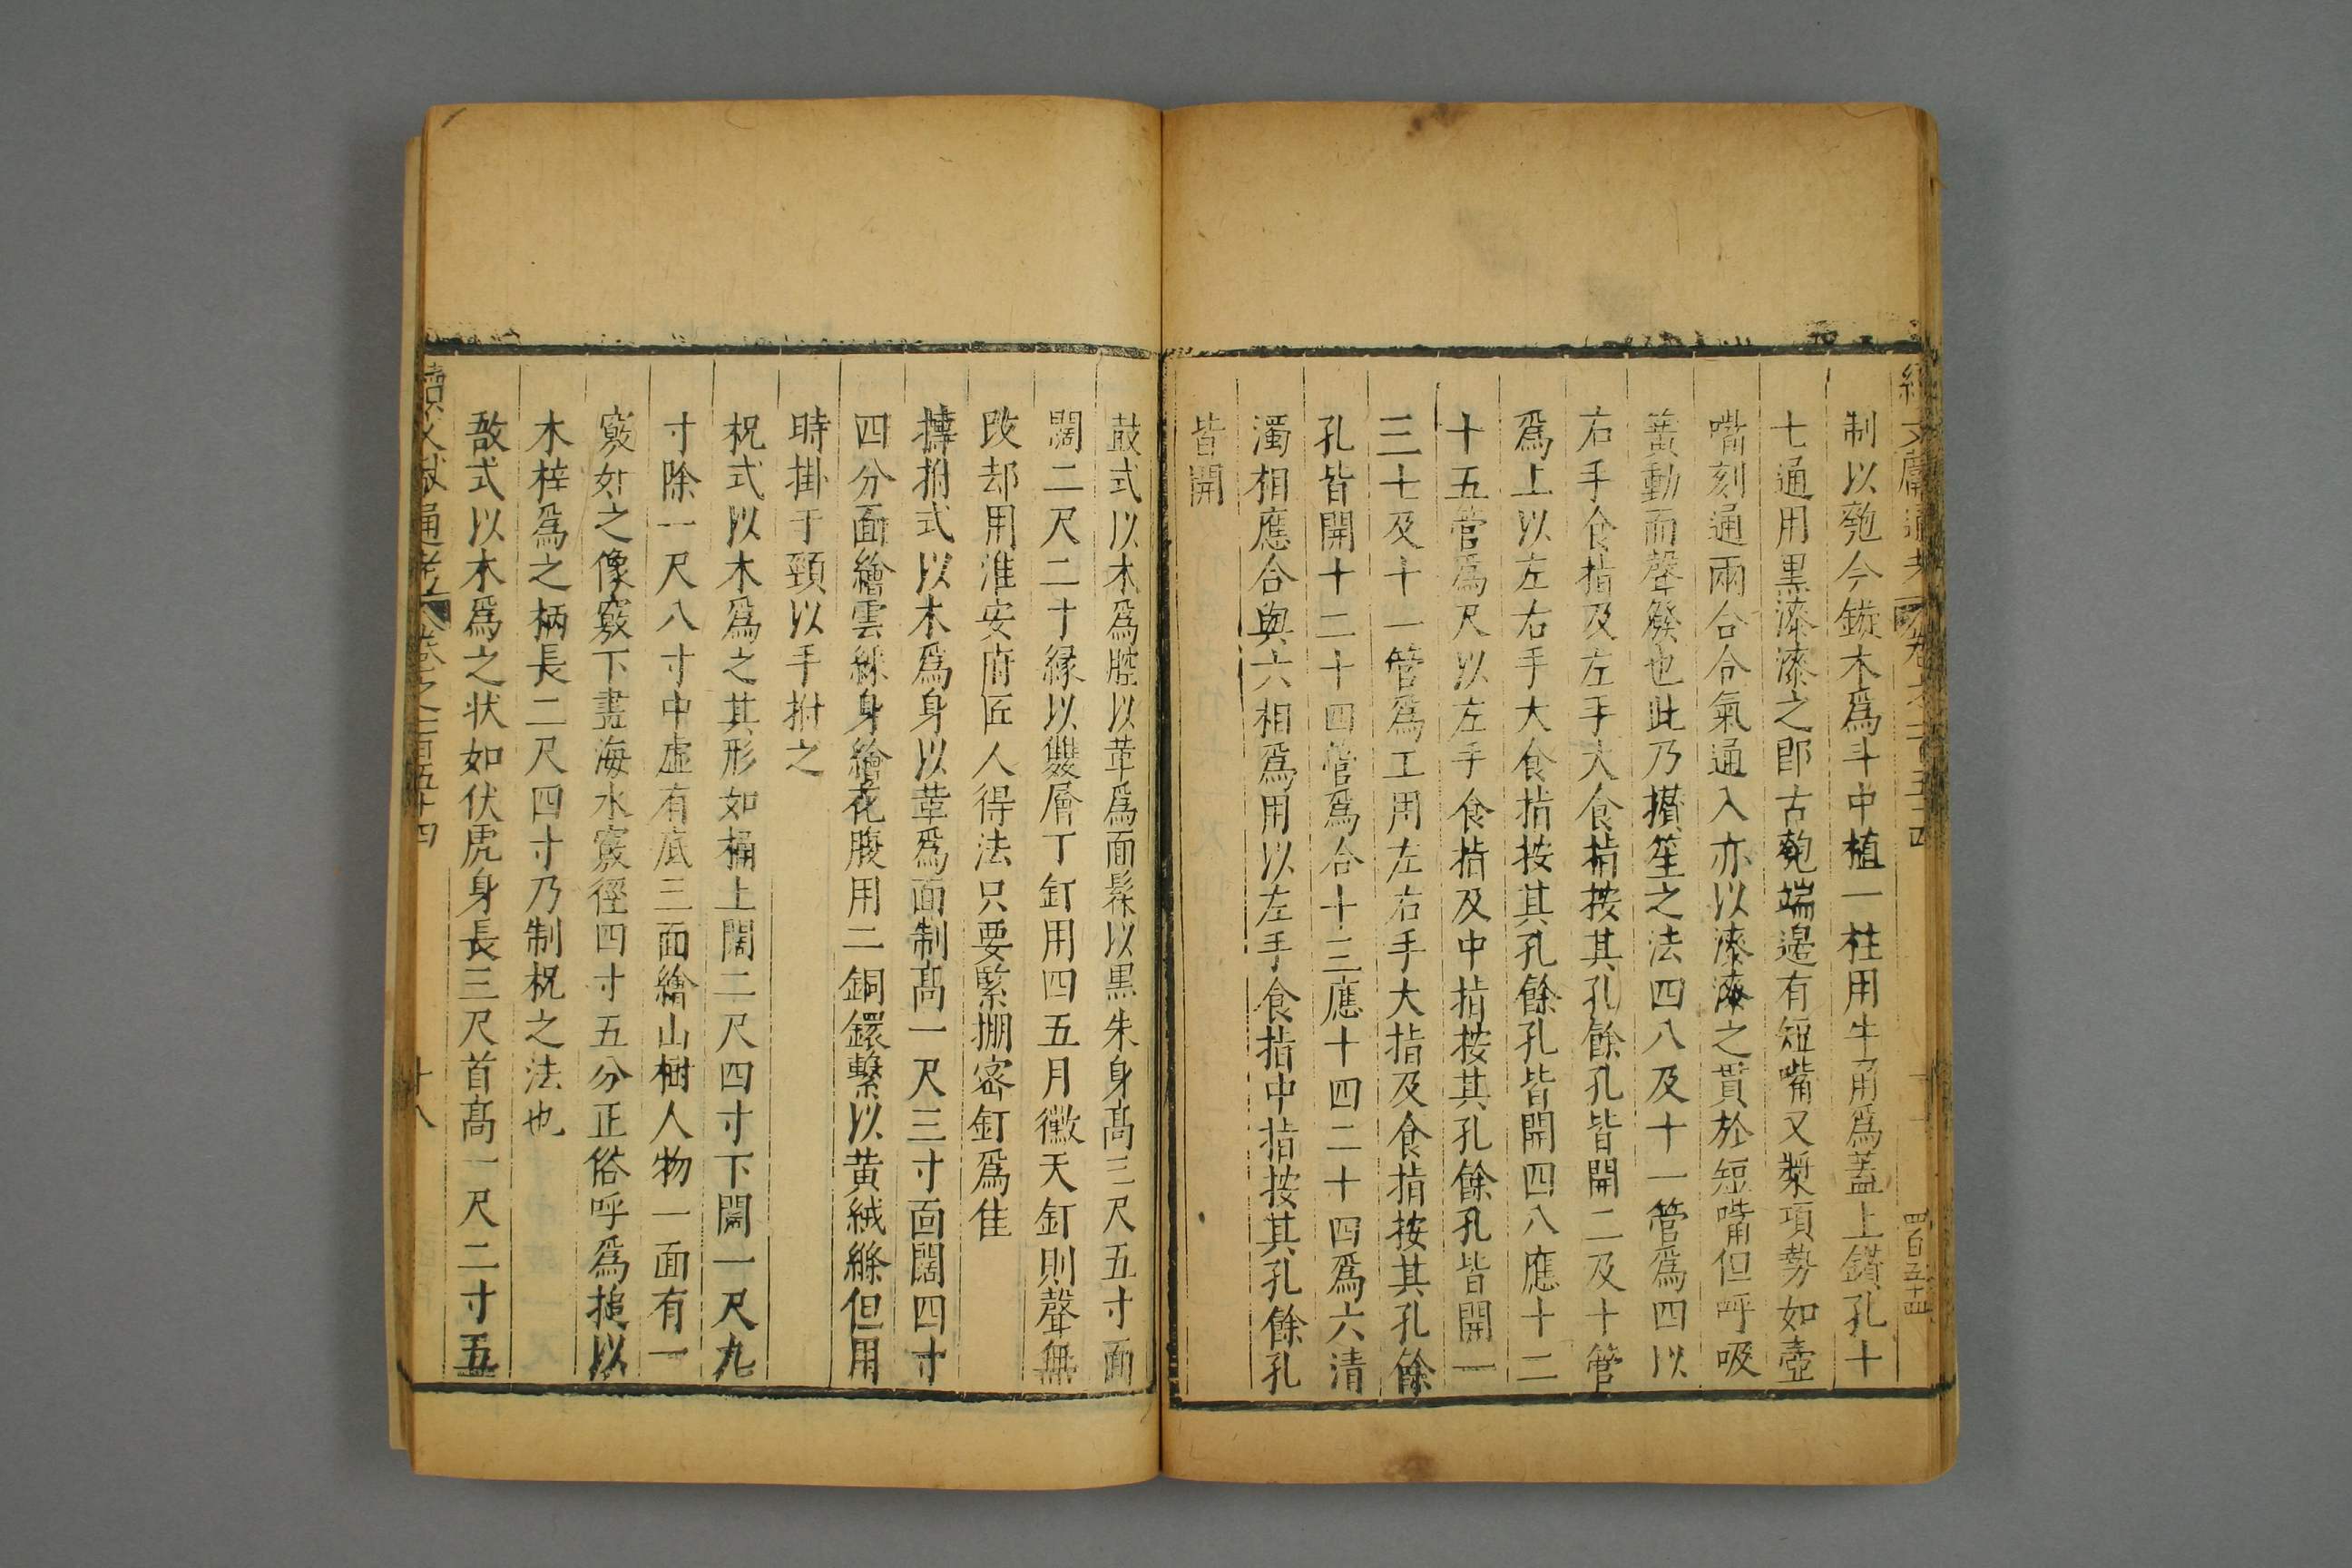 制以匏今鏇木爲斗中植一柱用牛角爲蓋上鑚孔十
七通用黒漆漆之即古匏端邉有短嘴又槳項勢如壺
嘴刻通兩合合氣通入亦以漆漆之貫於短嘴但呼吸
簧動而聲發也此乃攢笙之法四八及十一管爲四以
右手食指及左手大食指按其孔餘孔皆開二及十管
爲上以左右手大食指按其孔餘孔皆開四八應十二
十五管爲尺以左手食指及中指按其孔餘孔皆開一
三七及十一管爲工用左右手大指及食指按其孔餘
孔皆開十二十四管爲合十三應十四二十四爲六清
濁相應合與六相爲用以左手食指中指按其孔餘孔
皆開
鼓式以木爲腔以革爲面髹以黒朱身髙三尺五寸面
闊二尺二寸縁以雙層丁釘用四五月黴天釘則聲無
改却用淮安府匠人得法只要緊掤密釘爲佳
搏拊式以木爲身以革爲面制髙一尺三寸面闊四寸
四分面繪雲綵身繪花腹用二銅鐶繫以黄絨縧但用
時掛于頸以手拊之
柷式以木爲之其形如桶上闊二尺四寸下闊一尺九
寸除一尺八寸中虛有底三面繪山樹人物一面有一
竅如之像竅下畫海水竅徑四寸五分正俗呼爲搥以
木梓爲之柄長二尺四寸乃制柷之法也
敔式以木爲之状如伏虎身長三尺首髙一尺二寸五
續文献通考 卷之一百五十四
十八